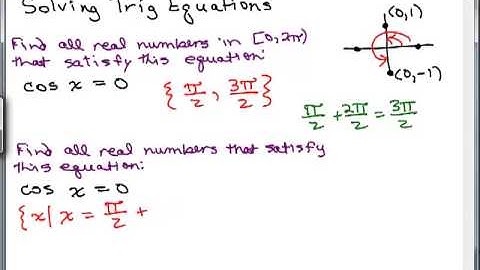 Solving Trig Equations
Find all real numbers in [0, 2π)
that satisfy this equation:
cos x = 0
{ π/2 , 3π/2 }
(0,1)
(0,-1)
π/2 + 2π/2 = 3π/2
Find all real numbers that satisfy
this equation:
cos x = 0
{ x | x = π/2 +